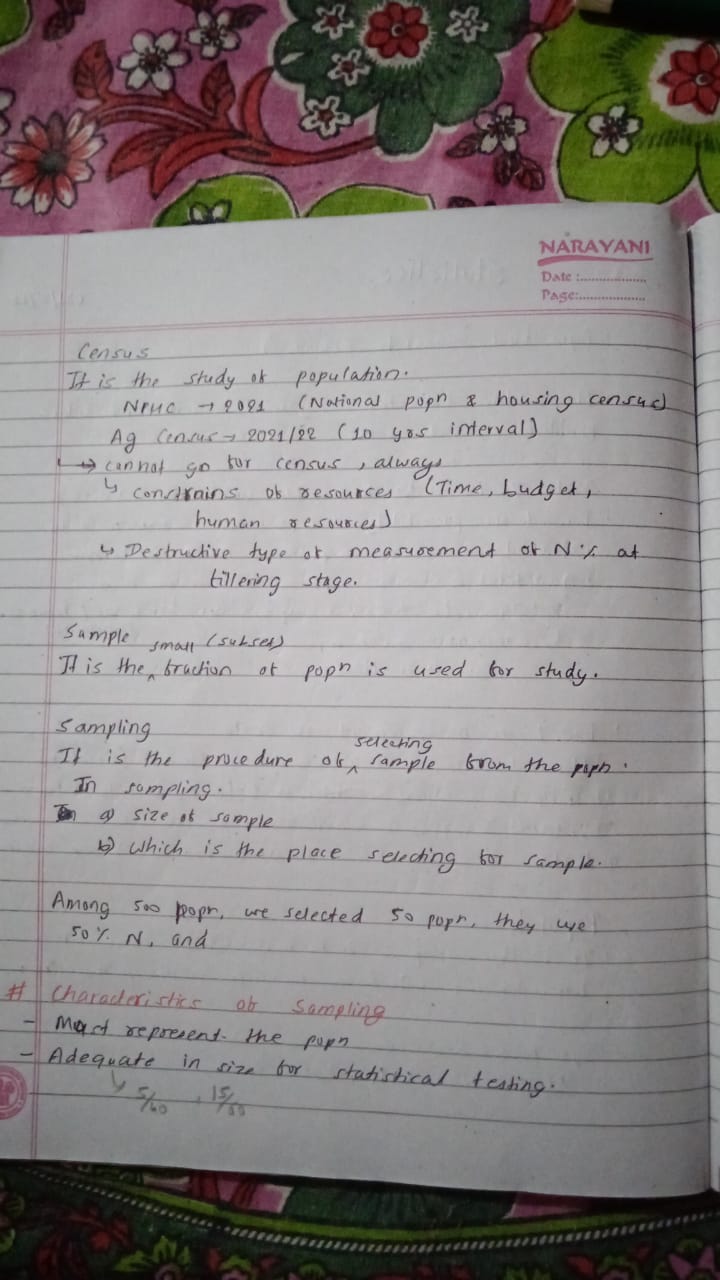 NARAYANI
Date :..................
Page:..................
Census
It is the study of population.
NPHC → 2021 (National popn & housing census)
Ag Census → 2021/22 (10 yrs interval)
↳→ cannot go for census, always
↳ constrains of resources (Time, budget,
human resources)
↳ Destructive type of measurement of N% at
tillering stage.
Sample
small (subset)
It is the ^ fraction of popn is used for study.
Sampling
selecting
It is the procedure of ^ sample from the popn.
In sampling.
a) size of sample
b) which is the place selecting for sample.
Among 500 popn, we selected 50 popn, they use
50% N, and
# Characteristics of Sampling
- Must represent the popn
- Adequate in size for statistical testing.
↳ 5/60 , 15/